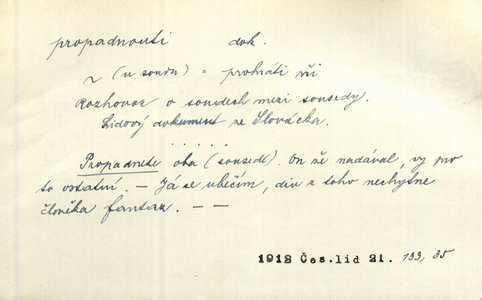 propadnouti dok.
~ (u soudu) = prohráti při
Rozhovor o soudech mezi sousedy.
Lidový dokument ze Slovácka.
. . . . .
Propadnete oba (sousedé). On že nadával, vy pro
to ostatní. — Já se ubečím, div z toho nechytne
člověka fantaz. — —
1912 Čes.lid 21. 133, 35